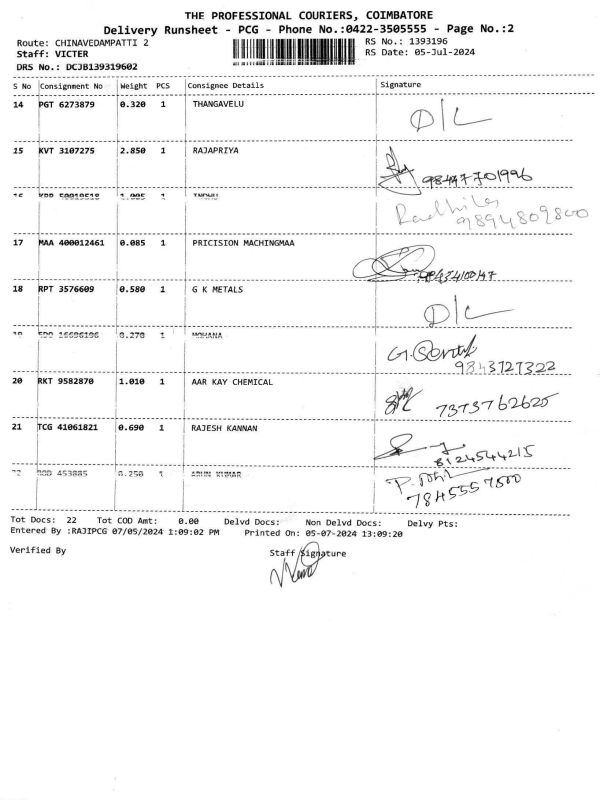 THE PROFESSIONAL COURIERS, COIMBATORE
Delivery Runsheet - PCG - Phone No.:0422-3505555 - Page No.:2
Route: CHINAVEDAMPATTI 2 RS No.: 1393196
Staff: VICTER RS Date: 05-Jul-2024
DRS No.: DCJB139319602
S No Consignment No Weight PCS Consignee Details Signature
14 PGT 6273879 0.320 1 THANGAVELU D/L
15 KVT 3107275 2.850 1 RAJAPRIYA
1.005 1
9894809800
17 MAA 400012461 0.085 1 PRICISION MACHINGMAA
18 RPT 3576609 0.580 1 G K METALS D/L
16696196 0.270 1 MOHANA G.
9843727322
20 RKT 9582870 1.010 1 AAR KAY CHEMICAL 7373762625
21 TCG 41061821 0.690 1 RAJESH KANNAN
8124544215
453885 0.250 1 ARUN KUMAR P.
7845557500
Tot Docs: 22 Tot COD Amt: 0.00 Delvd Docs: Non Delvd Docs: Delvy Pts:
Entered By :RAJIPCG 07/05/2024 1:09:02 PM Printed On: 05-07-2024 13:09:20
Verified By Staff Signature